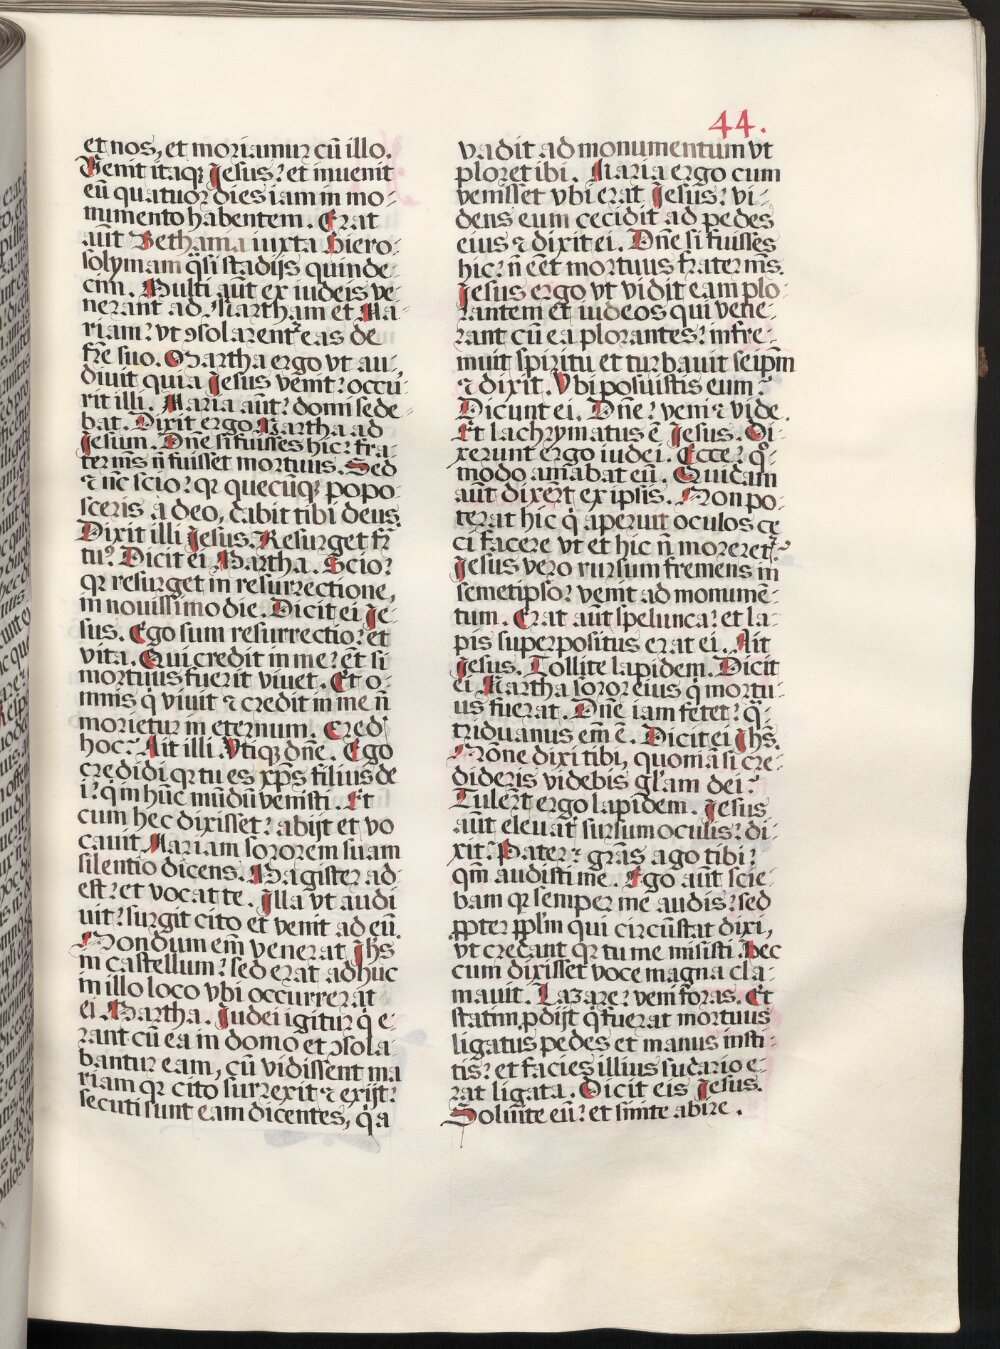 44.
et nos, et moriamur cũ illo.
Venit itaqꝫ Jesus? et inuenit
eũ quatuor dies iam in mo-
numento habentem. Erat
aũt Bethania iuxta hiero-
solymam q̃si stadijs quinde-
cim. Multi aũt ex iudeis ve-
nerant ad Martham et Ma-
riam? vt ↄsolarent̃ eas de
fr̃e suo. Martha ergo vt au-
diuit quia Jesus venit? occu-
rit illi. Maria aũt? domi sede-
bat. Dixit ergo Martha ad
Jesum. Dñe si fuisses hic? fra-
ter mẽs ñ fuisset mortuus. Sed
⁊ ñc scio? qꝛ quecũqꝫ popo-
sceris a deo, dabit tibi deus.
Dixit illi Jesus. Resurget fr̃
tu? Dicit ei Martha. Scio?
qꝛ resurget in resurrectione,
in nouissimo die. Dicit ei Je-
sus. Ego sum resurrectio? et
vita. Qui credit in me? et̃ si
mortuus fuerit viuet. Et o-
mnis q̇ viuit ⁊ credit in me ñ
morietur in eternum. Credi
hoc? Ait illi Vtiqꝫ dñe. Ego
credidi qꝛ tu es xp̃s filius de
i? q̇ in hũc mũdũ venisti. Et
cum hec dixisset? abijt et vo
cauit Mariam sororem suam
silentio dicens. Magister ad-
est? et vocat te. Illa vt audi
uit? surgit cito et venit ad eũ.
Nondum em̃ venerat Jhs̃
in castellum? sed erat adhuc
in illo loco vbi occurrerat
ei Martha. Judei igitur q̇ e-
rant cũ ea in domo et ↄsola
bantur eam, cũ vidissent ma
riam qꝛ cito surrexit ⁊ exijt?
secuti sunt eam dicentes, q̇a
vadit ad monumentum vt
ploret ibi. Maria ergo cum
venisset vbi erat Jesus? vi-
dens eum cecidit ad pedes
eius ⁊ dixit ei. Dñe si fuisses
hic? ñ eẽt mortuus frater mẽs.
Jesus ergo vt vidit eam plo-
rantem et iudeos qui vene-
rant cũ ea plorantes? infre-
muit spiritu et turbauit seip̃m
⁊ dixit. Vbi posuistis eum?
Dicunt ei. Dñe? veni ⁊ vide.
Et lachrymatus ẽ Jesus. Di-
xerunt ergo iudei. Ecce? q̊-
modo amabat eũ. Quidam
aũt dixer̃t ex ipsis. Non po-
terat hic q̇ aperuit oculos ce
ci facere vt et hic ñ moreret̃?
Jesus vero rursum fremens in
semetipso? venit ad monumẽ-
tum. Erat aũt spelunca? et la-
pis superpositus erat ei. Ait
Jesus. Tollite lapidem. Dicit
ei Martha soror eius q̇ mortu-
us fuerat. Dñe iam fetet? q̃-
triduanus em̃ ẽ. Dicit ei Jhs̃.
Nõne dixi tibi, quomã si cre-
dideris videbis gl̃am dei?
Tuler̃t ergo lapidem. Jesus
aũt eleuat̃ sursum oculis? di-
xit. Pater? gr̃as ago tibi?
qm̃ audisti me. Ego aũt scie-
bam qꝛ semper me audis? sed
ꝓpter ppl̃m qui circũstat dixi,
vt credant qꝛ tu me misisti. Hec
cum dixisset voce magna cla-
mauit. Lazare? veni foras. Et
statim ꝓdijt q̇ fuerat mortuus
ligatus pedes et manus insti-
tis? et facies illius sudario e-
rat ligata. Dicit eis Jesus.
Soluite eũ? et sinite abire.